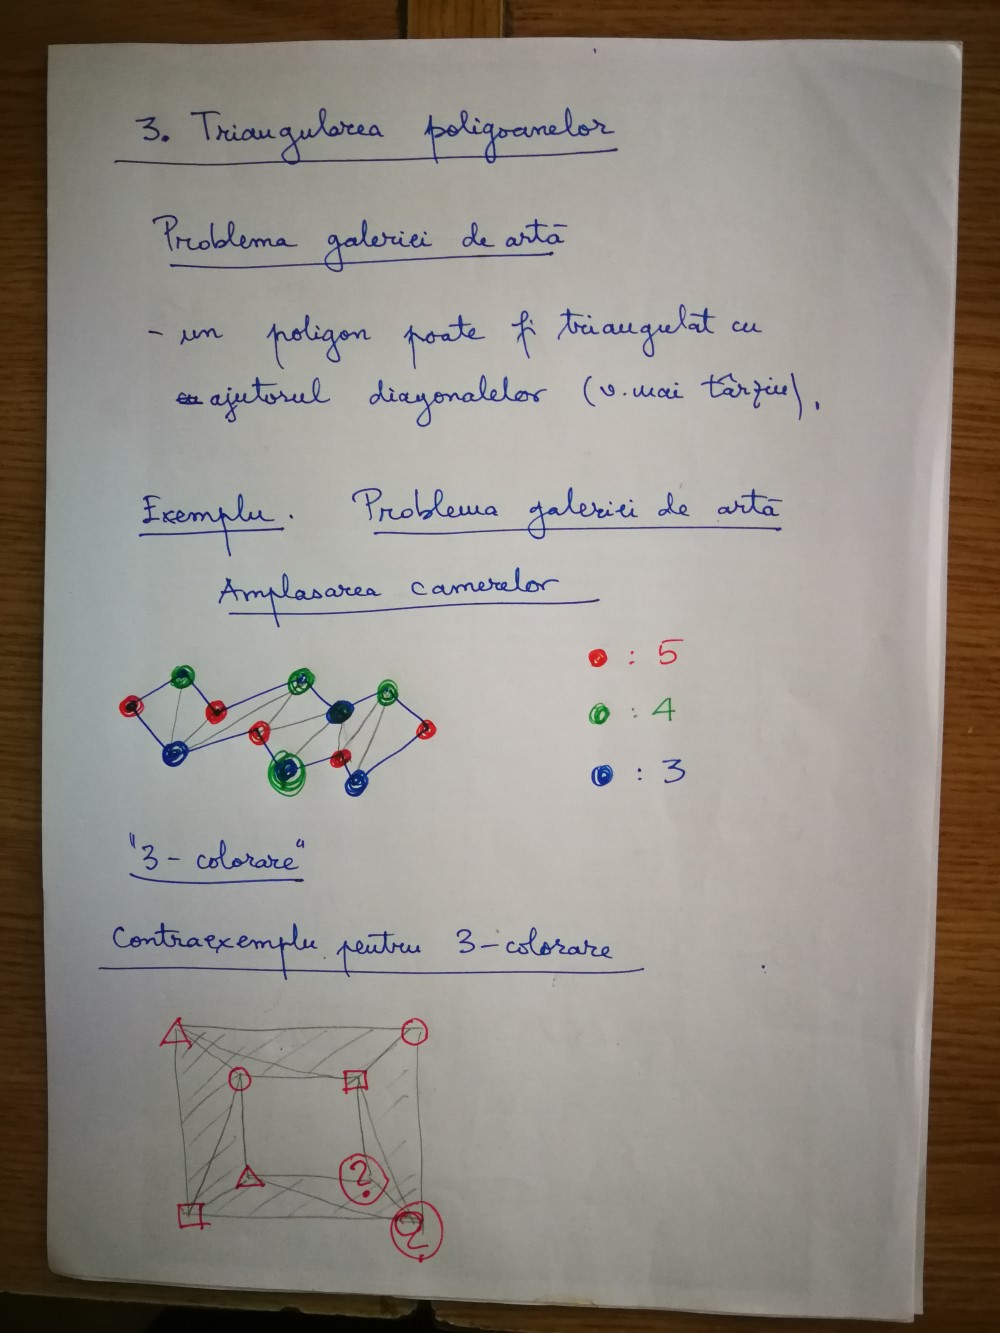 3. Triangularea poligoanelor
Problema galeriei de artă
- un poligon poate fi triangulat cu
cu ajutorul diagonalelor (v. mai târziu).
Exemplu. Problema galeriei de artă
Amplasarea camerelor
: 5
: 4
: 3
"3 - colorare"
Contraexemplu pentru 3-colorare
?
?